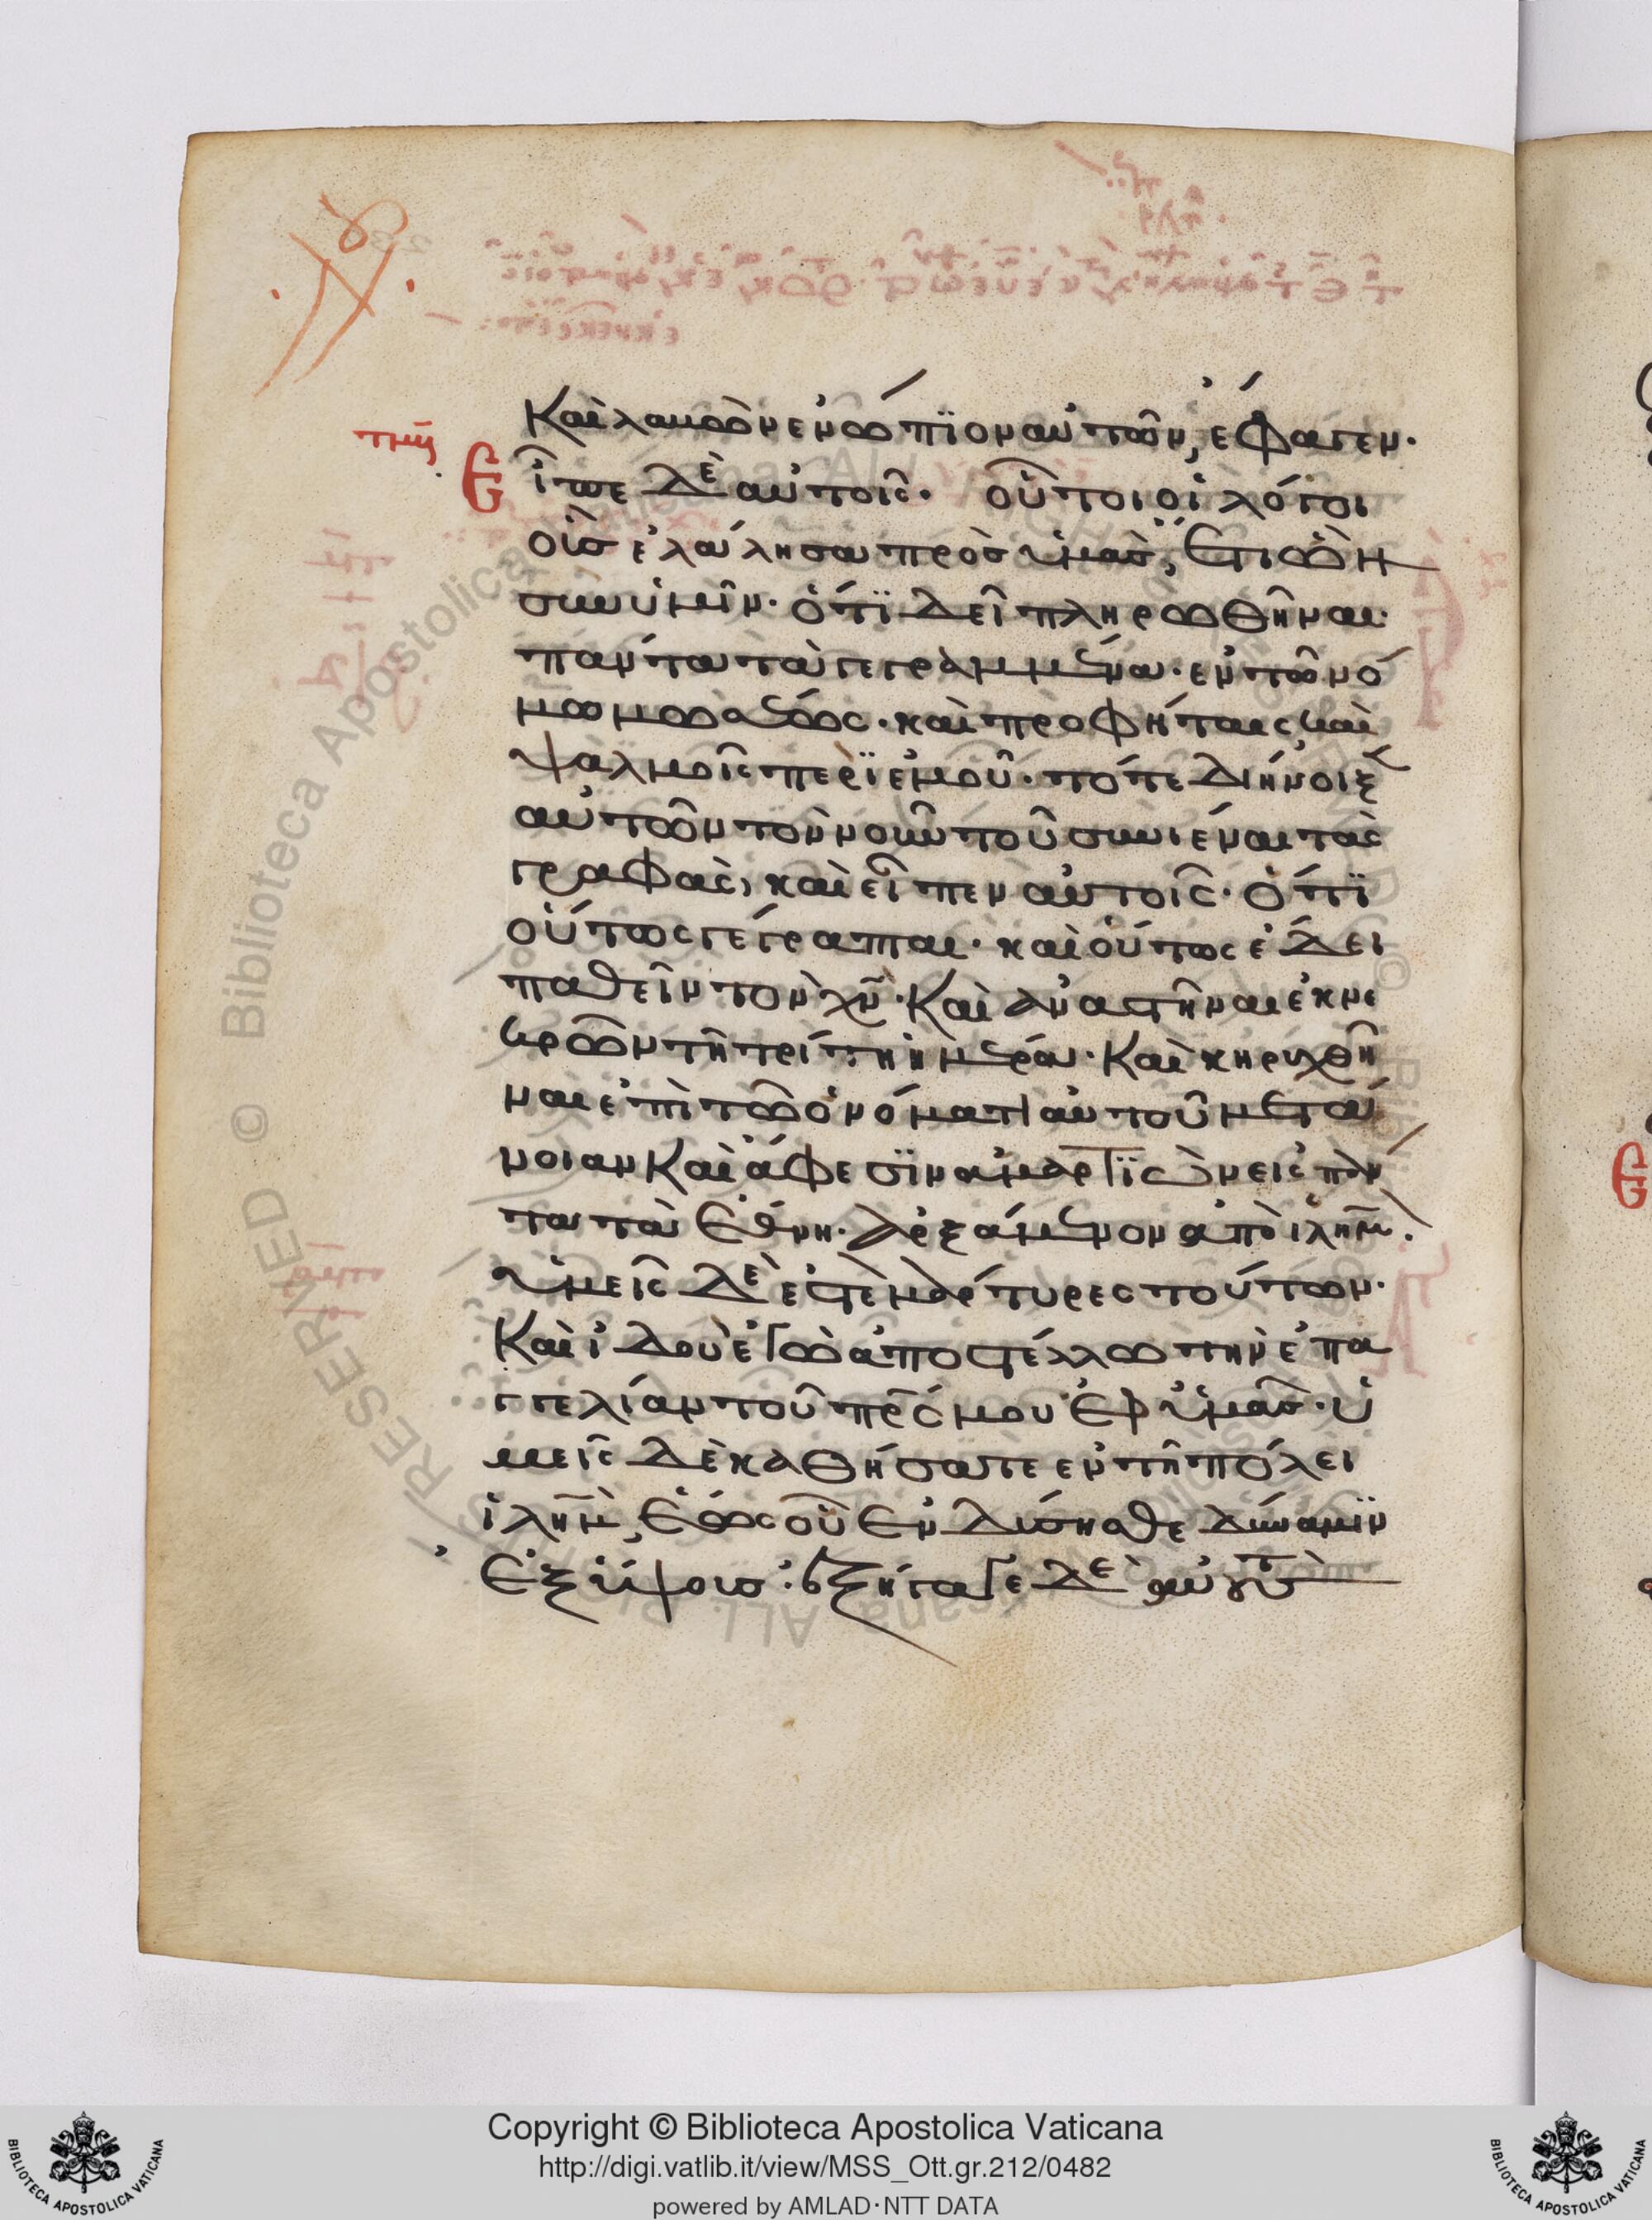 τμη
Καὶ λαβὼν ἐνώπϊον αὐτῶν, ἔφαγεν.
Εἶπε δὲ αὐτοῖς. οὗτοι οἱ λόγοι
οὓς ἐλάλησα πρὸς ὑμᾶς, ἔτι ὢν
σὺν ὑμῖν. ὅτϊ δεῖ πληρωθῆναι
πάντα τὰ γεγραμμένα. ἐν τῶ νό
μω μωσέως. καὶ προφήταις καὶ
ψαλμοῖς περϊ ἐμοῦ. τότε διήνοιξ
αὐτῶν τὸν νοῦν τοῦ συνιέναι τὰς
γραφὰς, καὶ εἶπεν αὐτοῖς. ὅτϊ
οὕτως γέγραπται. καὶ οὕτως ἔδει
παθεῖν τὸν χν. Καὶ ἀναστῆναι ἐκ νε
κρῶν τῆ τρίτη ἡμέρα. Καὶ κηρυχθῆ
ναι ἐπὶ τῶ ὀνόματι αὐτοῦ μετά
νοιαν Καὶ ἄφεσϊν ἁμαρτϊῶν εἰς πάν
τα τὰ ἔθνη. ἀρξάμενον ἀπὸ ιλημ.
ὑμεῖς δὲ ἐστὲ μάρτυρες τούτων.
Καὶ ἰδοὺ ἐγὼ ἀποστέλλω τὴν ἐπα
γγελίαν τοῦ πρς μου ἐφ ὑμᾶς. ὑ
μεῖς δὲ καθήσατε ἐν τῆ πόλει
ιλημ, ἕως οὗ ἐνδύσησθε δύναμϊν
ἐξ ὕψους. ἐξήγαγε δὲ αὐτοὺς
Copyright © Biblioteca Apostolica Vaticana
http://digi.vatlib.it/view/MSS_Ott.gr.212/0482
powered by AMLAD·NTT DATA
BIBLIOTECA APOSTOLICA VATICANA
BIBLIOTECA APOSTOLICA VATICANA